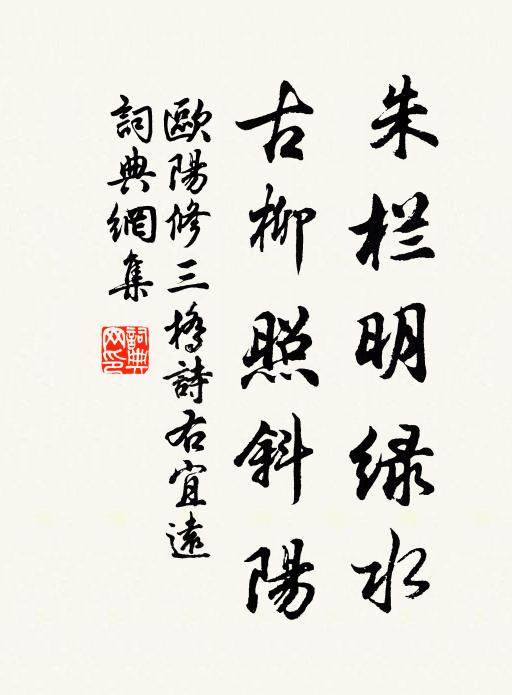 朱栏明绿水
古柳照斜陽
歐陽修三橋詩右宜遠
詞典網集
詞典网印